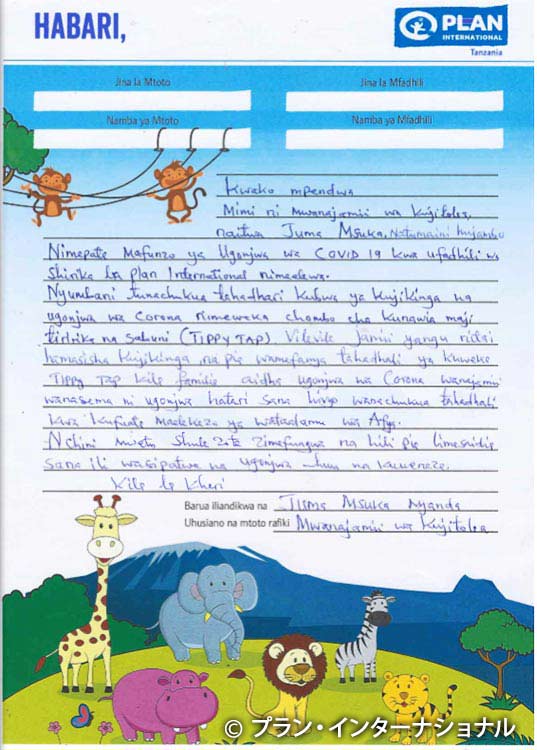 HABARI,
PLAN
INTERNATIONAL
Tanzania
Jina la Mtoto
Jina la Mfadhili
Namba ya Mtoto
Namba ya Mfadhili
Kwako mpendwa
Mimi ni Mwanajamii wa Kujitolea,
naitwa Juma Msuka, Natumaini hujambo
Nimepata Mafunzo ya Ugonjwa wa COVID 19 kwa ufadhili wa
Shirika la plan International nimeelewa.
Nyumbani tunachukua tahadhari kubwa ya kujikinga na
ugonjwa wa Corona nimeweka chombo cha kunawia maji
tiririka na sabuni (TIPPY TAP). Vilevile Jamii yangu
hamasisha kujikinga na pia wamefanya tahadhali ya kuweka
TIPPY TAP kila familia aidha ugonjwa wa Corona wanajamii
wanasema ni ugonjwa hatari sana hivyo wanachukua tahadhali
kwa kufuata maelekezo ya wataalamu wa Afya.
Nchini Mwetu Shule zote zimefungwa na hili pia limesaidia
sana ili wasipatwe na ugonjwa huu na kuueneza.
Kila la kheri
Barua iliandikwa na Juma Msuka Nyanda
Uhusiano na mtoto rafiki Mwanajamii wa Kujitolea
© プラン・インターナショナル